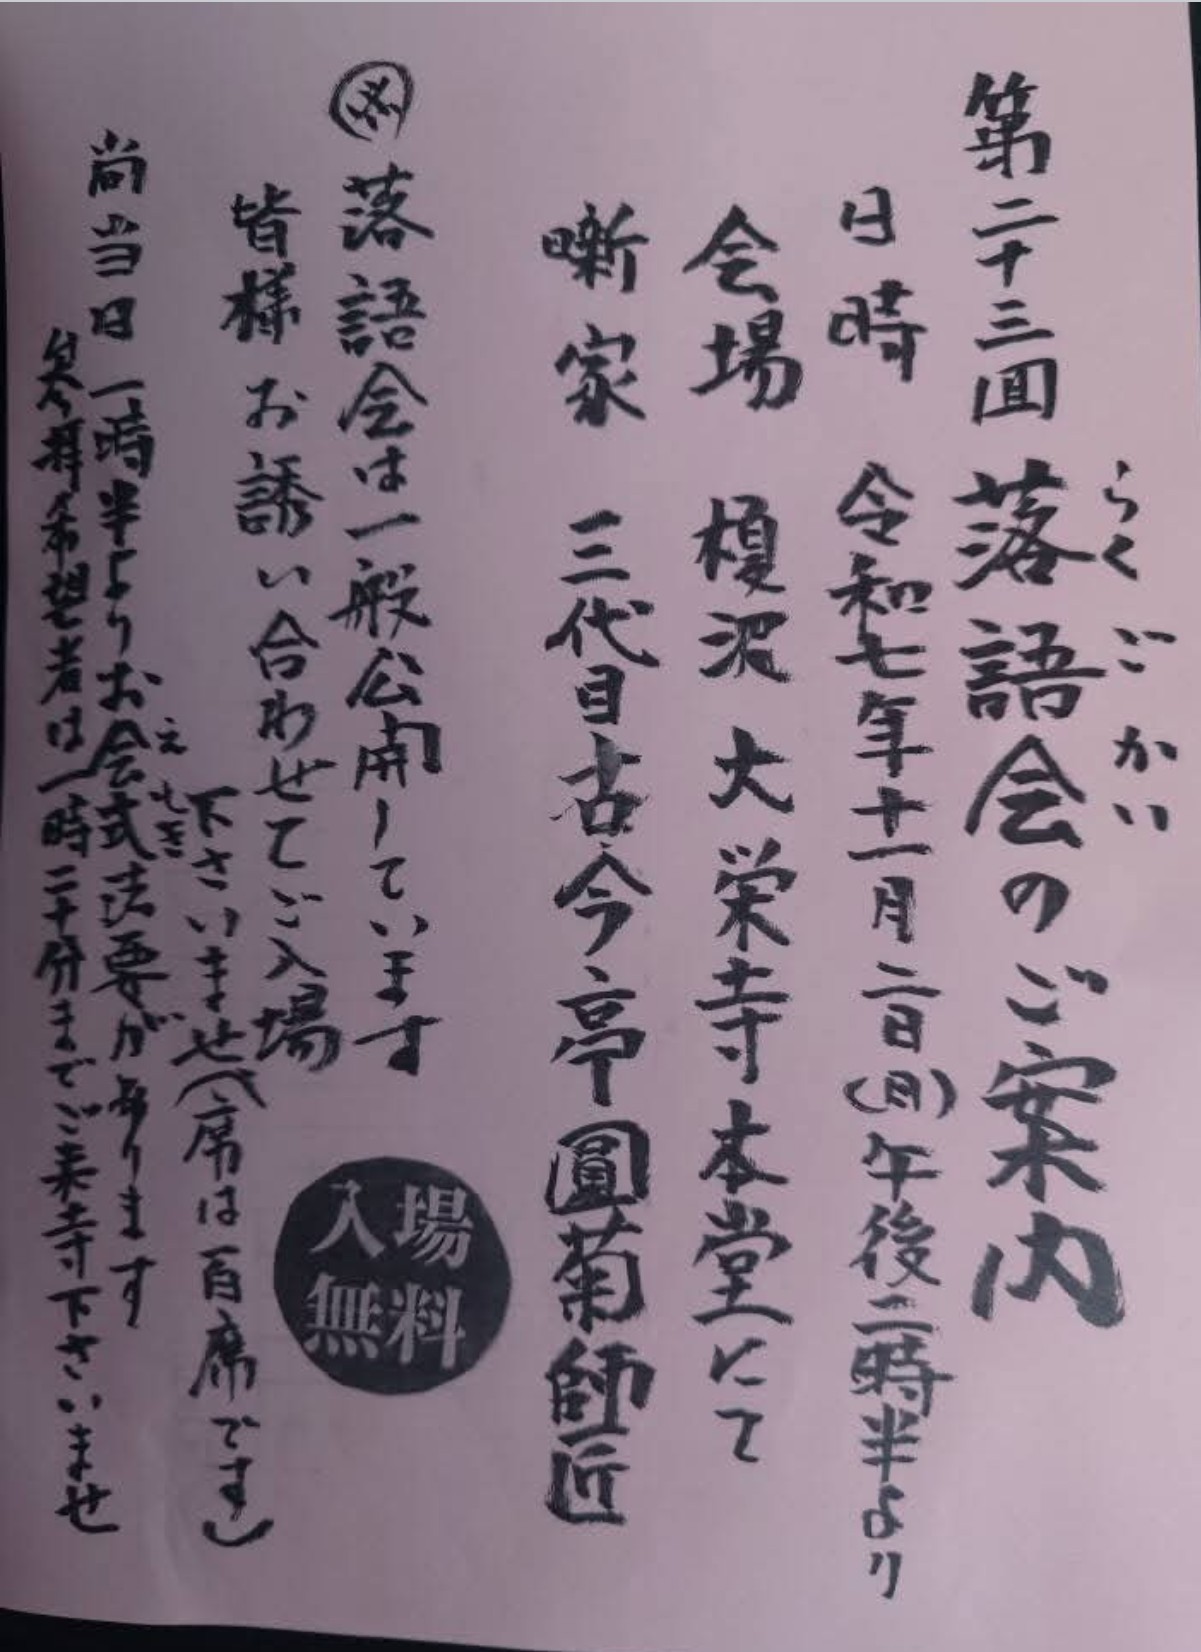 第二十三回 落語会のご案内
らくごかい
日時 令和七年十一月二日(月)午後二時半より
会場 榎沢 大栄寺本堂にて
噺家 三代目古今亭圓菊師匠
落語会は一般公開しています
皆様お誘い合わせてご入場
下さいませ(席は百席です)
入場
無料
尚当日一時半よりお会式法要があります
えしき
参拝希望者は一時二十分までご来寺下さいませ